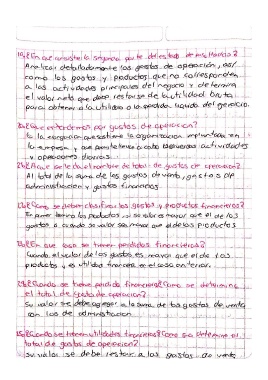 ¿En que consiste la segunda parte del estado de resultados?
Analizar detalladamente los gastos de operación, así
como los gastos y productos que no correspondan
a las actividades principales del negocio y determina
el valor neto que debe restarse de la utilidad bruta
para obtener a la utilidad o la perdida liquida del ejercicio.
¿Que entendemos por gastos de operación?
la organización implantada en
la empresa y que permite llevar a cabo las diversas actividades
y operaciones diarias.
¿A que se le da el nombre de total de gastos de operación?
Al total de la suma de los gastos de venta, gastos de
administración y gastos financieros.
¿Como se deben clasificar los gastos y productos financieros?
En primer termino los productos, si su valor es mayor que el de los
gastos o cuando su valor sea menor que el de los productos
¿En que caso se tienen perdidas financieras?
Cuando el valor de los gastos es mayor que el de los
productos, es utilidad financiera en el caso anterior.
¿Cuando se tiene perdida financiera? Como se determina
el total de gastos de operación?
Su valor se debe agregar a la suma de los gastos de venta,
con los de administración
¿Cuando se tienen utilidades financieras? Como se determina el
total de gastos de operación?
Su valor se debe restar a los gastos de venta,